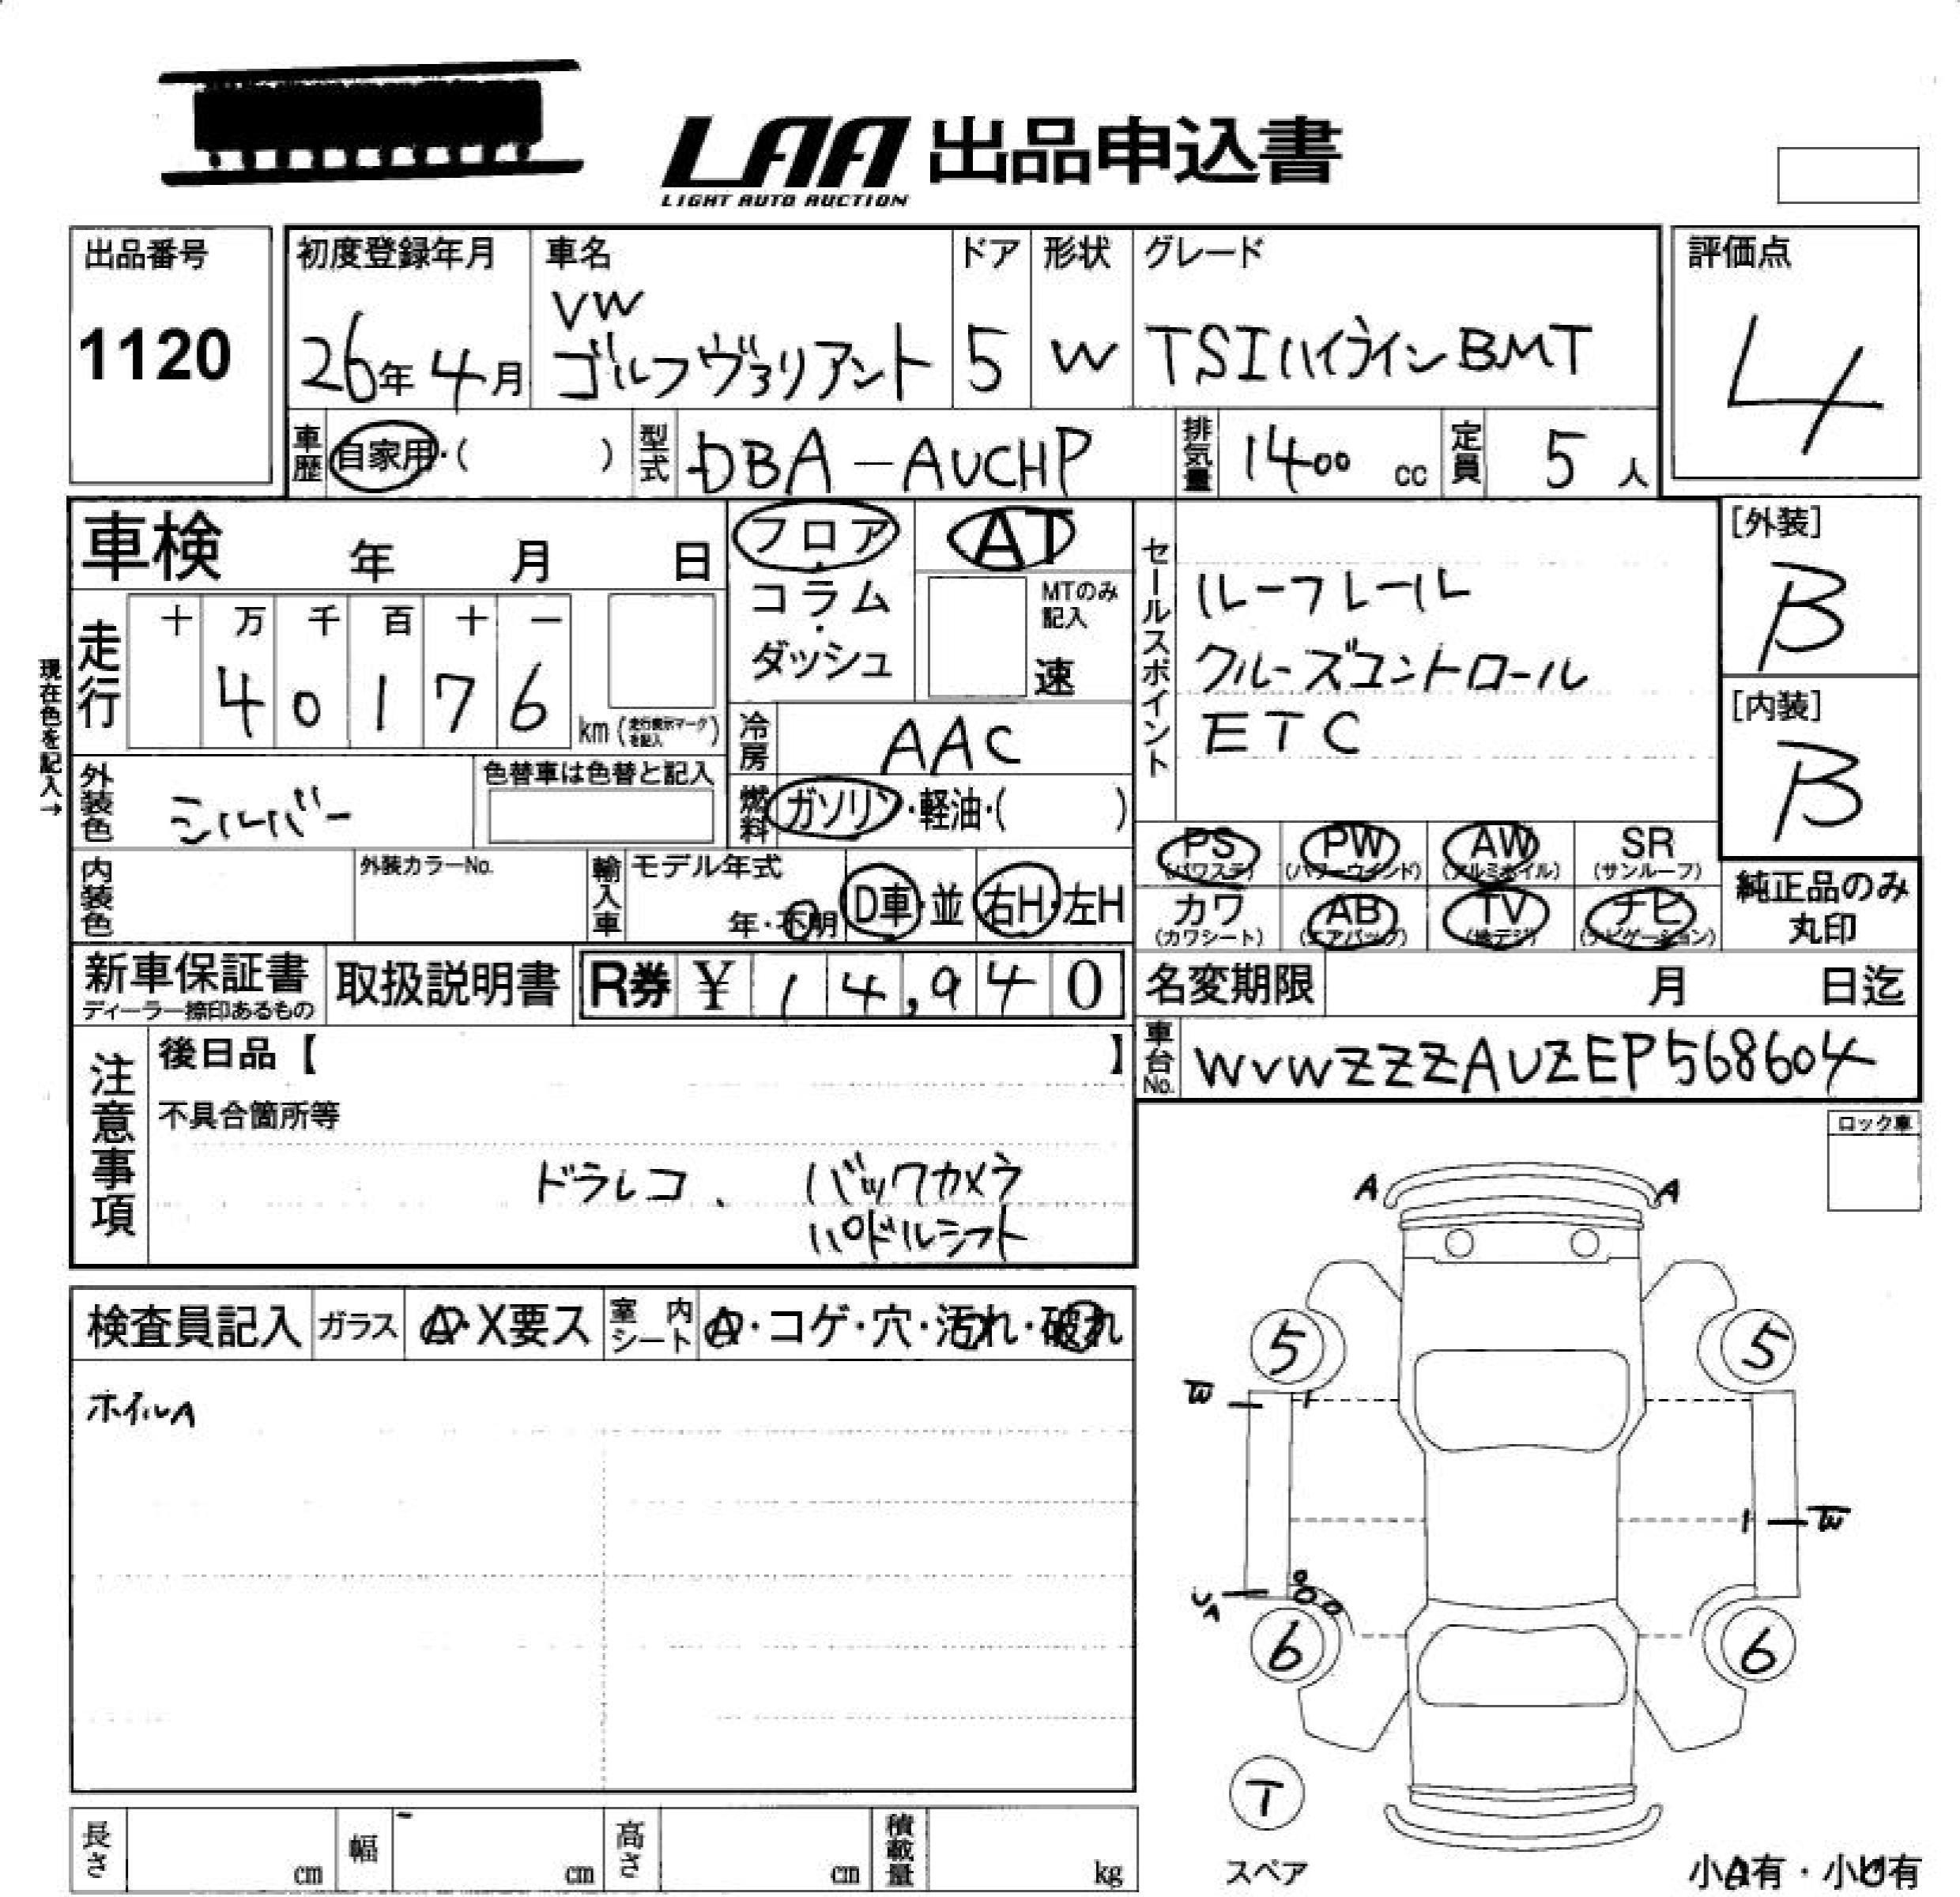 LAA 出品申込書
LIGHT AUTO AUCTION
出品番号
1120
初度登録年月
26年 4月
車名
VW
ゴルフヴァリアント
ドア
5
形状
W
グレード
TSIハイラインBMT
評価点
4
車歴 自家用・( )
型式 DBA-AUCHP
排気量 1400 cc
定員 5 人
車検 年 月 日
現在色を記入→
走行 十 万 千 百 十 一
40176
km (走行表示マークを記入)
フロア・コラム・ダッシュ
AT
MTのみ記入
速
冷房 AAC
燃料 ガソリン・軽油・( )
セールスポイント
ルーフレール
クルーズコントロール
ETC
[外装]
B
[内装]
B
外装色 シルバー
色替車は色替と記入
内装色
外装カラーNo.
輸入車 モデル年式
年・不明
D車・並
右H・左H
PS (パワステ) PW (パワーウインド) AW (アルミホイル) SR (サンルーフ)
カワ (カワシート) AB (エアバッグ) TV (地デジ) ナビ (ナビゲーション)
純正品のみ
丸印
新車保証書
ディーラー捺印あるもの
取扱説明書
R券 ¥ 14,940
名変期限 月 日迄
車台No. WVWZZZAUZEP568604
注意事項
後日品【 】
不具合箇所等
ドラレコ、 バックカメラ
パドルシフト
ロック車
検査員記入 ガラス A・X要ス 室内シート A・コゲ・穴・汚れ・破れ
ホイルA
A A
5 5
W
W
UA
6 6
T
スペア
長さ cm 幅 cm 高さ cm 積載量 kg
小A有・小U有